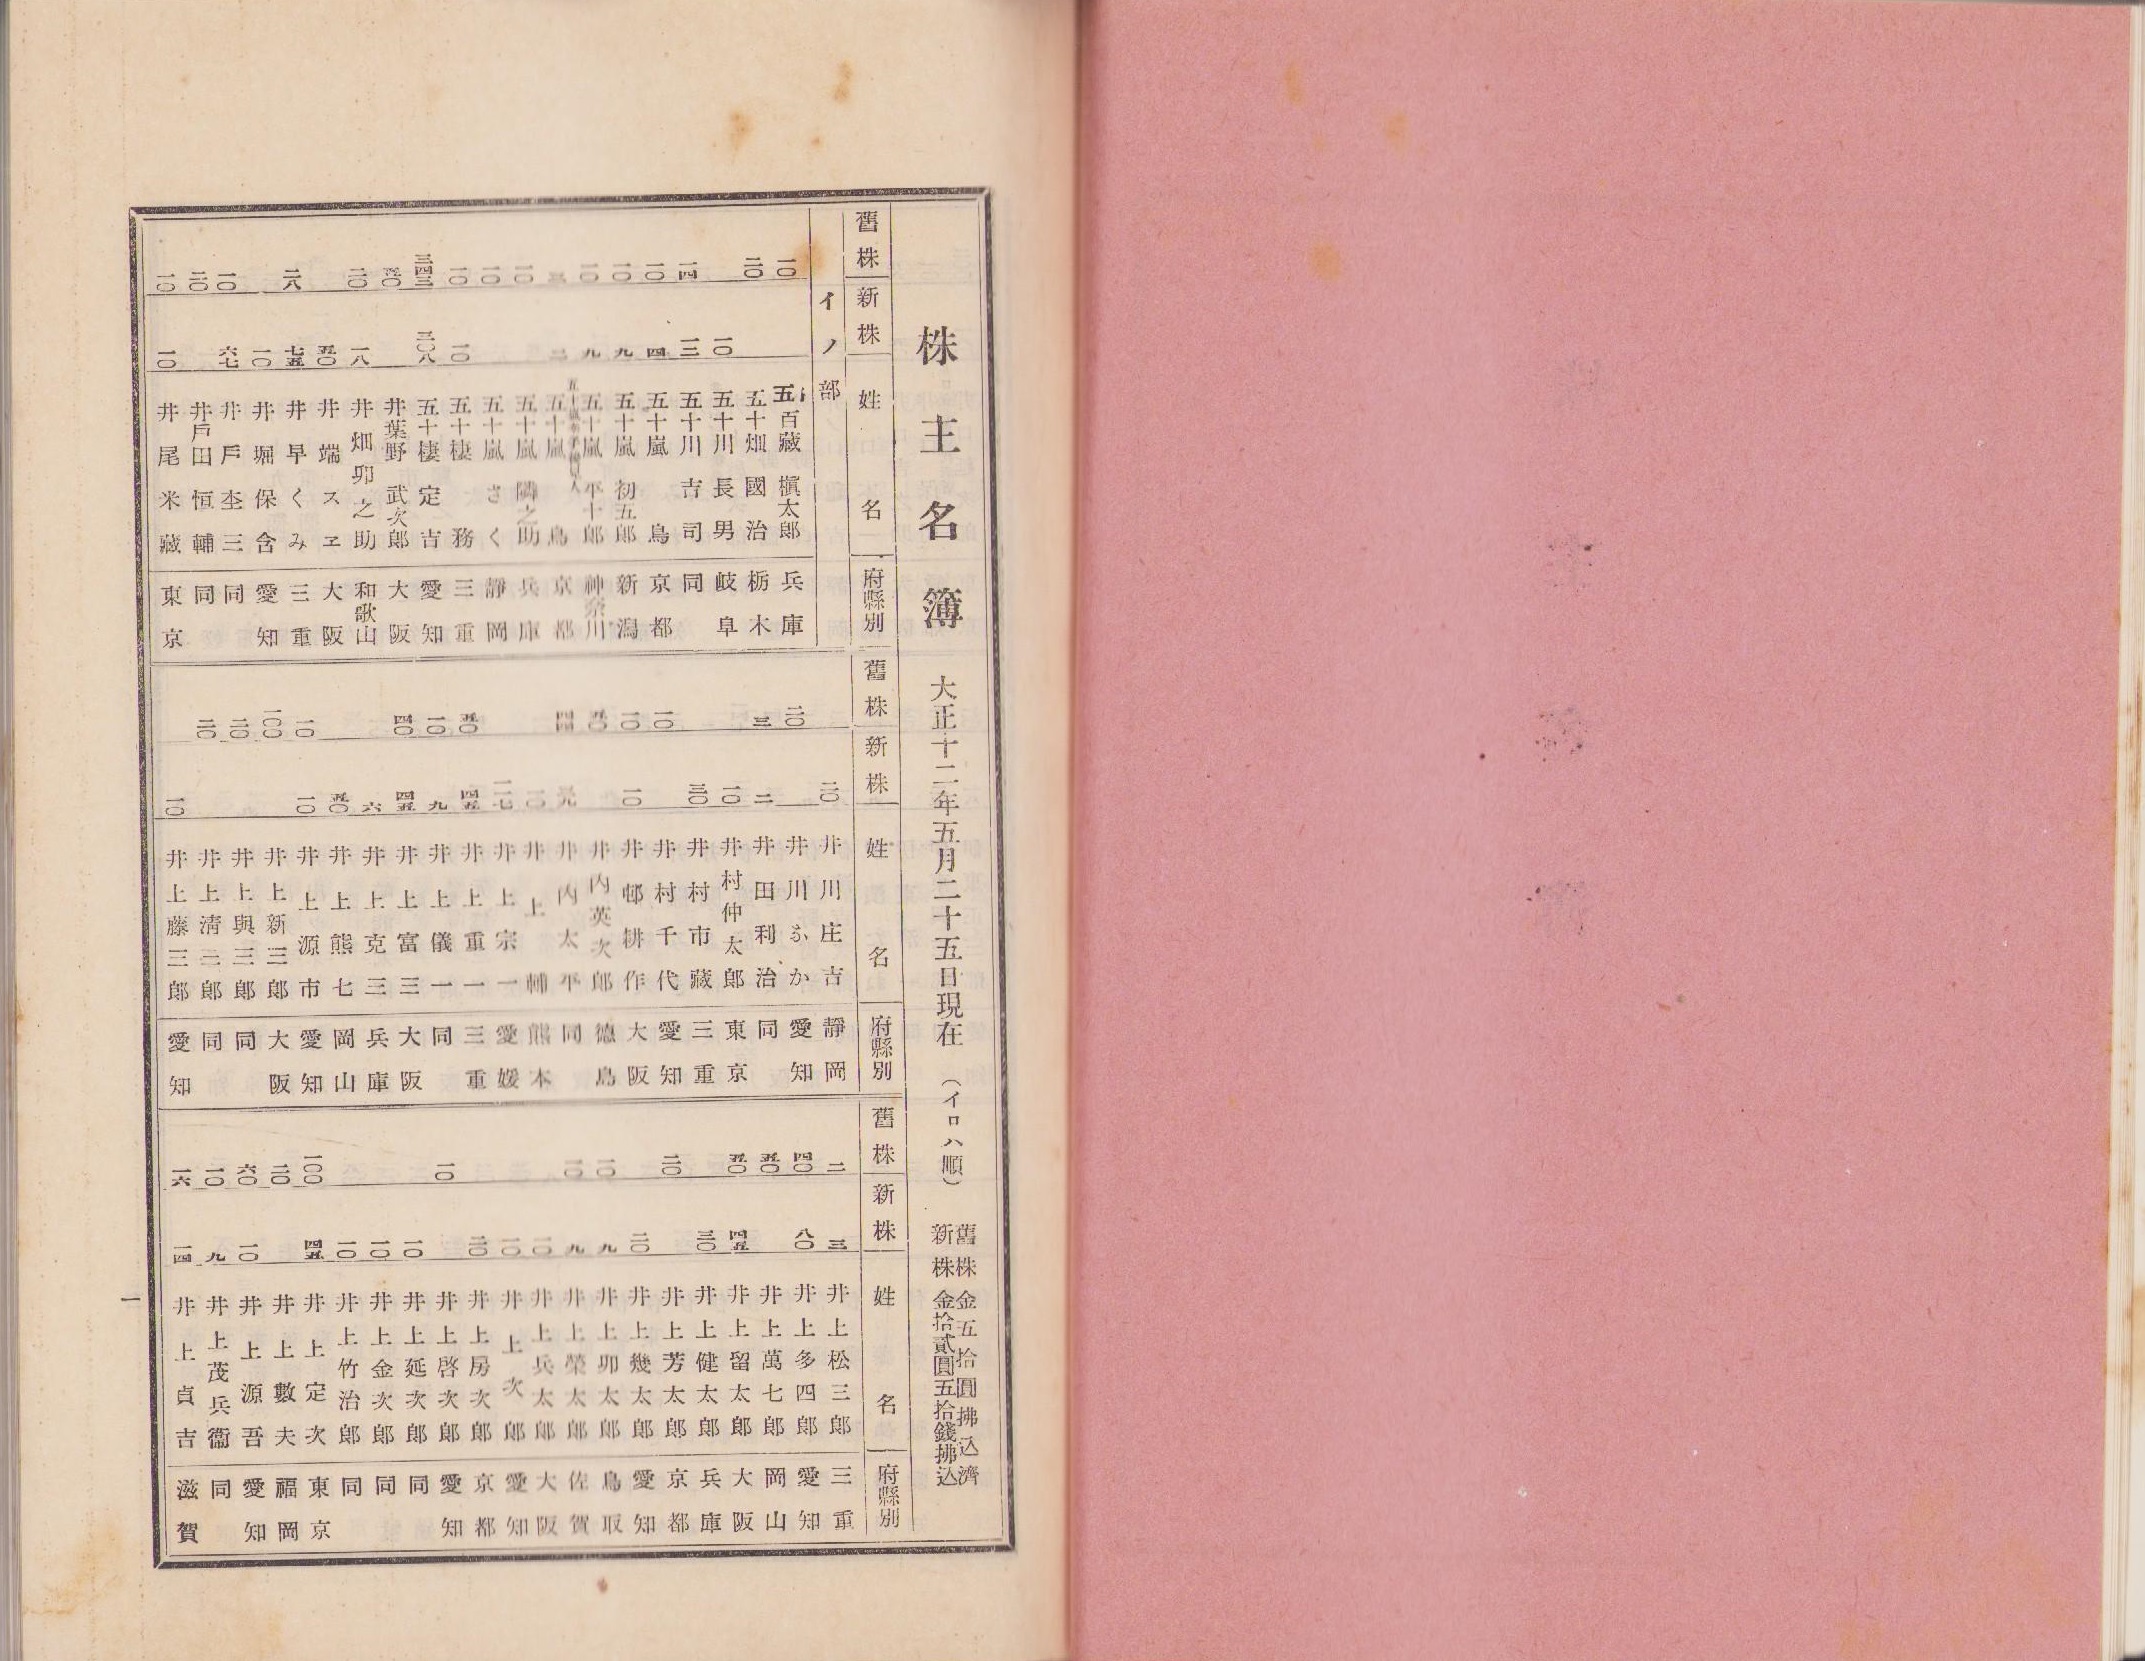 株主名簿 大正十二年五月二十五日現在 (イロハ順) 舊株金五拾圓拂込濟
新株金拾貳圓五拾錢拂込
舊株 新株 姓名 府縣別
イノ部
一〇 五百藏槇太郎 兵庫
二〇 五十畑國治 栃木
一〇 五十川長男 岐阜
一四 一三 五十川吉司 同
一〇 四 五十嵐鳥 京都
一〇 九 五十嵐初五郎 新潟
一〇 九 五十嵐平十郎 神奈川
三 二 五十嵐鳥 京都
一〇 五十嵐隣之助 兵庫
一〇 五十嵐さく 靜岡
一〇 一〇 五十棲務 三重
三四三 三〇八 五十棲定吉 愛知
五〇 井葉野武次郎 大阪
二〇 一八 井畑卯之助 和歌山
五〇 井端スヱ 大阪
二八 七五 井早くみ 三重
一〇 井堀保含 愛知
一〇 六七 井戶杢三 同
二〇 井戶田恒輔 同
一〇 一〇 井尾米藏 東京
舊株 新株 姓名 府縣別
二〇 井川庄吉 靜岡
二〇 井川おか 愛知
三 二 井田利治 同
一〇 井村仲太郎 東京
三〇 井村市藏 三重
一〇 井村千代 愛知
一〇 一〇 井邨耕作 大阪
五〇 井內英次郎 德島
井內太平 同
一〇 井上輔 熊本
一七 井上宗一 愛媛
五〇 四五 井上重一 三重
一〇 九 井上儀一 同
四〇 四五 井上富三 大阪
六 井上克三 兵庫
五〇 井上熊七 岡山
一〇 一〇 井上源市 愛知
一〇〇 井上新三郎 大阪
二〇 井上與三郎 同
二〇 井上淸二郎 同
一〇 井上藤三郎 愛知
舊株 新株 姓名 府縣別
二 三 井上松三郎 三重
四〇 八〇 井上多四郎 愛知
五〇 井上萬七郎 岡山
五〇 四五 井上留太郎 大阪
三〇 井上健太郎 兵庫
二〇 井上芳太郎 京都
二〇 井上幾太郎 愛知
一〇 九 井上卯太郎 鳥取
一〇 九 井上榮太郎 佐賀
一〇 井上兵太郎 大阪
一〇 井上次郎 愛知
二〇 井上房次郎 京都
一〇 井上啓次郎 愛知
一〇 井上延次郎 同
一〇 井上金次郎 同
一〇 井上竹治郎 同
一〇〇 四五 井上定次 東京
二〇 井上數夫 福岡
六〇 一〇 井上源吾 愛知
一〇 九 井上茂兵衞 同
一六 一四 井上貞吉 滋賀
一